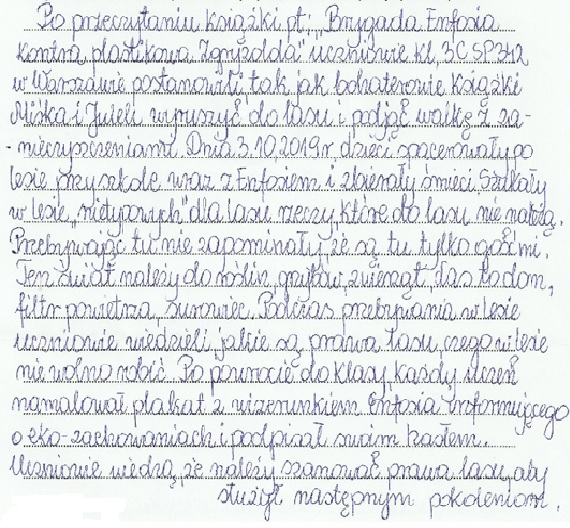 Po przeczytaniu książki pt: „Brygada Enfosia
kontra plastikowa Zgryzolda" uczniowie kl. 3C SP 342
w Warszawie postanowili, tak jak bohaterowie książki
Miśka i Juleli, wyruszyć do lasu i podjąć walkę z za-
- nieczyszczeniami. Dnia 3.10.2019r. dzieci spacerowały po
lesie przy szkole wraz z Enfosiem i zbierały śmieci. Szukały
w lesie „nietypowych" dla lasu rzeczy, które do lasu nie należą.
Przebywając tu, nie zapominały, że są tu tylko gośćmi.
Ten świat należy do roślin, grzybów, zwierząt, las to dom,
filtr powietrza, surowiec. Podczas przebywania w lesie
uczniowie wiedzieli, jakie są prawa lasu, czego w lesie
nie wolno robić. Po powrocie do klasy, każdy uczeń
namalował plakat z wizerunkiem Enfosia informującego
o eko-zachowaniach i podpisał swoim hasłem.
Uczniowie wiedzą, że należy szanować prawa lasu, aby
służył następnym pokoleniom.